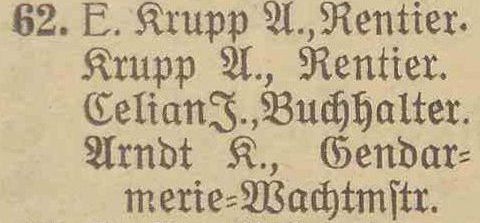 62. E. Krupp A., Rentier.
Krupp A., Rentier.
Celian J., Buchhalter.
Arndt K., Gendar-
merie-Wachtmstr.